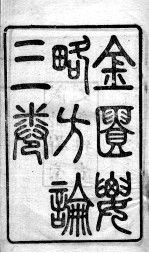 金匱要
略方論
三卷